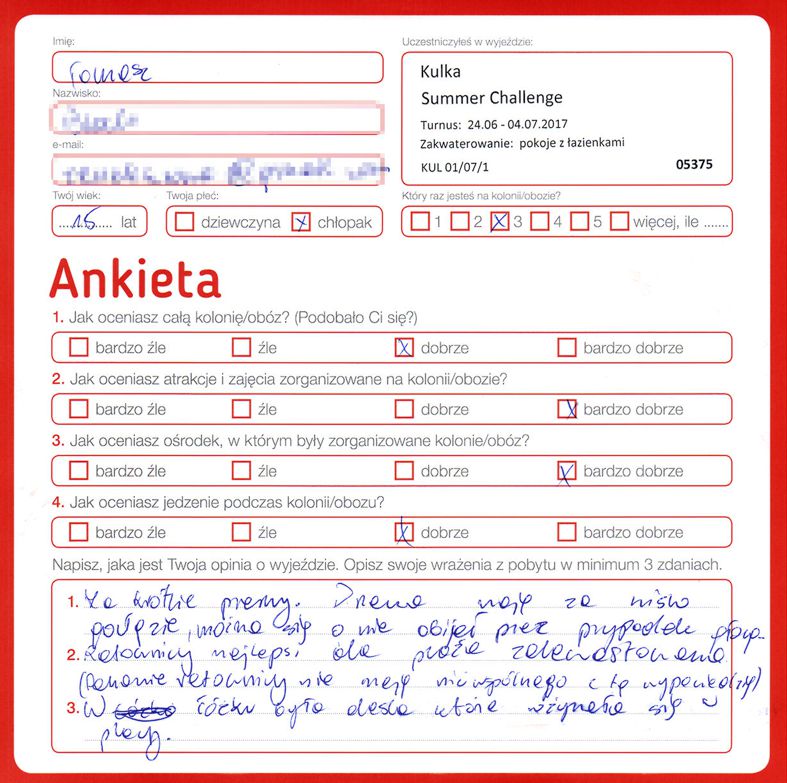 Imię:
Tomasz
Uczestniczyłeś w wyjeździe:
Kulka
Summer Challenge
Turnus: 24.06 - 04.07.2017
Zakwaterowanie: pokoje z łazienkami
KUL 01/07/1 05375
Nazwisko:
e-mail:
Twój wiek:
15 lat
Twoja płeć:
dziewczyna x chłopak
Który raz jesteś na kolonii/obozie?
1 2 x 3 4 5 więcej, ile .......
Ankieta
1. Jak oceniasz całą kolonię/obóz? (Podobało Ci się?)
bardzo źle źle x dobrze bardzo dobrze
2. Jak oceniasz atrakcje i zajęcia zorganizowane na kolonii/obozie?
bardzo źle źle dobrze x bardzo dobrze
3. Jak oceniasz ośrodek, w którym były zorganizowane kolonie/obóz?
bardzo źle źle dobrze x bardzo dobrze
4. Jak oceniasz jedzenie podczas kolonii/obozu?
bardzo źle źle x dobrze bardzo dobrze
Napisz, jaka jest Twoja opinia o wyjeździe. Opisz swoje wrażenia z pobytu w minimum 3 zdaniach.
1. Za krótkie przerwy. Drzewa mają za nisko
gałęzie, można się o nie obijać przez przypadek głową.
2. Ratownicy najlepsi ale plaża zdewastowana
(Panowie ratownicy nie mają nic wspólnego z tą wypowiedzią)
3. W łóżku była deska która wżynała się w
plecy.